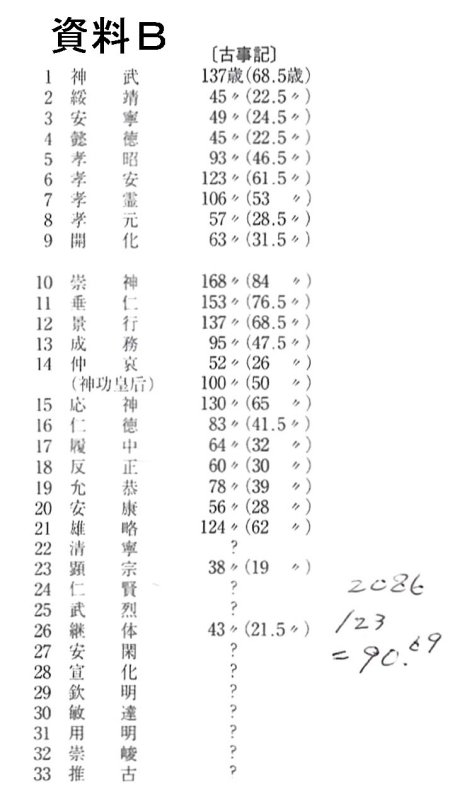 資料B
〔古事記〕
1 神武 137歳(68.5歳)
2 綏靖 45〃(22.5〃)
3 安寧 49〃(24.5〃)
4 懿徳 45〃(22.5〃)
5 孝昭 93〃(46.5〃)
6 孝安 123〃(61.5〃)
7 孝霊 106〃(53 〃)
8 孝元 57〃(28.5〃)
9 開化 63〃(31.5〃)
10 崇神 168〃(84 〃)
11 垂仁 153〃(76.5〃)
12 景行 137〃(68.5〃)
13 成務 95〃(47.5〃)
14 仲哀 52〃(26 〃)
(神功皇后) 100〃(50 〃)
15 応神 130〃(65 〃)
16 仁徳 83〃(41.5〃)
17 履中 64〃(32 〃)
18 反正 60〃(30 〃)
19 允恭 78〃(39 〃)
20 安康 56〃(28 〃)
21 雄略 124〃(62 〃)
22 清寧 ?
23 顕宗 38〃(19 〃)
24 仁賢 ?
25 武烈 ?
26 継体 43〃(21.5〃)
27 安閑 ?
28 宣化 ?
29 欽明 ?
30 敏達 ?
31 用明 ?
32 崇峻 ?
33 推古 ?
2086
/23
=90.69